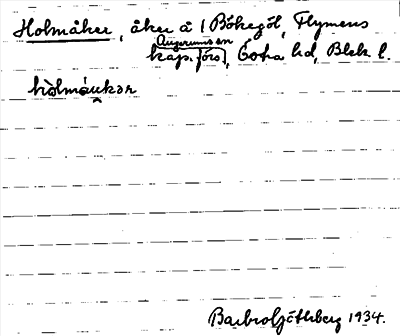 Holmåker, åker å 1 Bökegöl, Flymens
Augerums sn
kap. förs, Östra hd, Blek. l.
hòlmåukər
Barbro Götlsberg 1934.